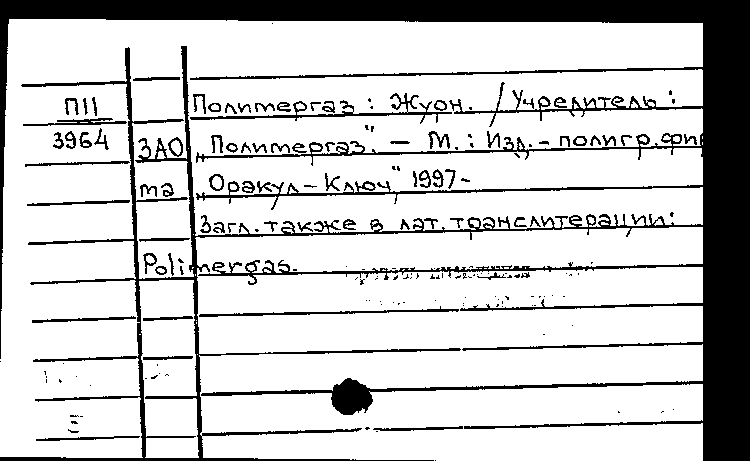 ПII Полимергаз : Журн. / Учредитель :
3964 ЗАО „Полимергаз". – М. : Изд. – полигр. фир
ма „Оракул – Ключ", 1997–
Загл. также в лат. транслитерации:
Polimergas.